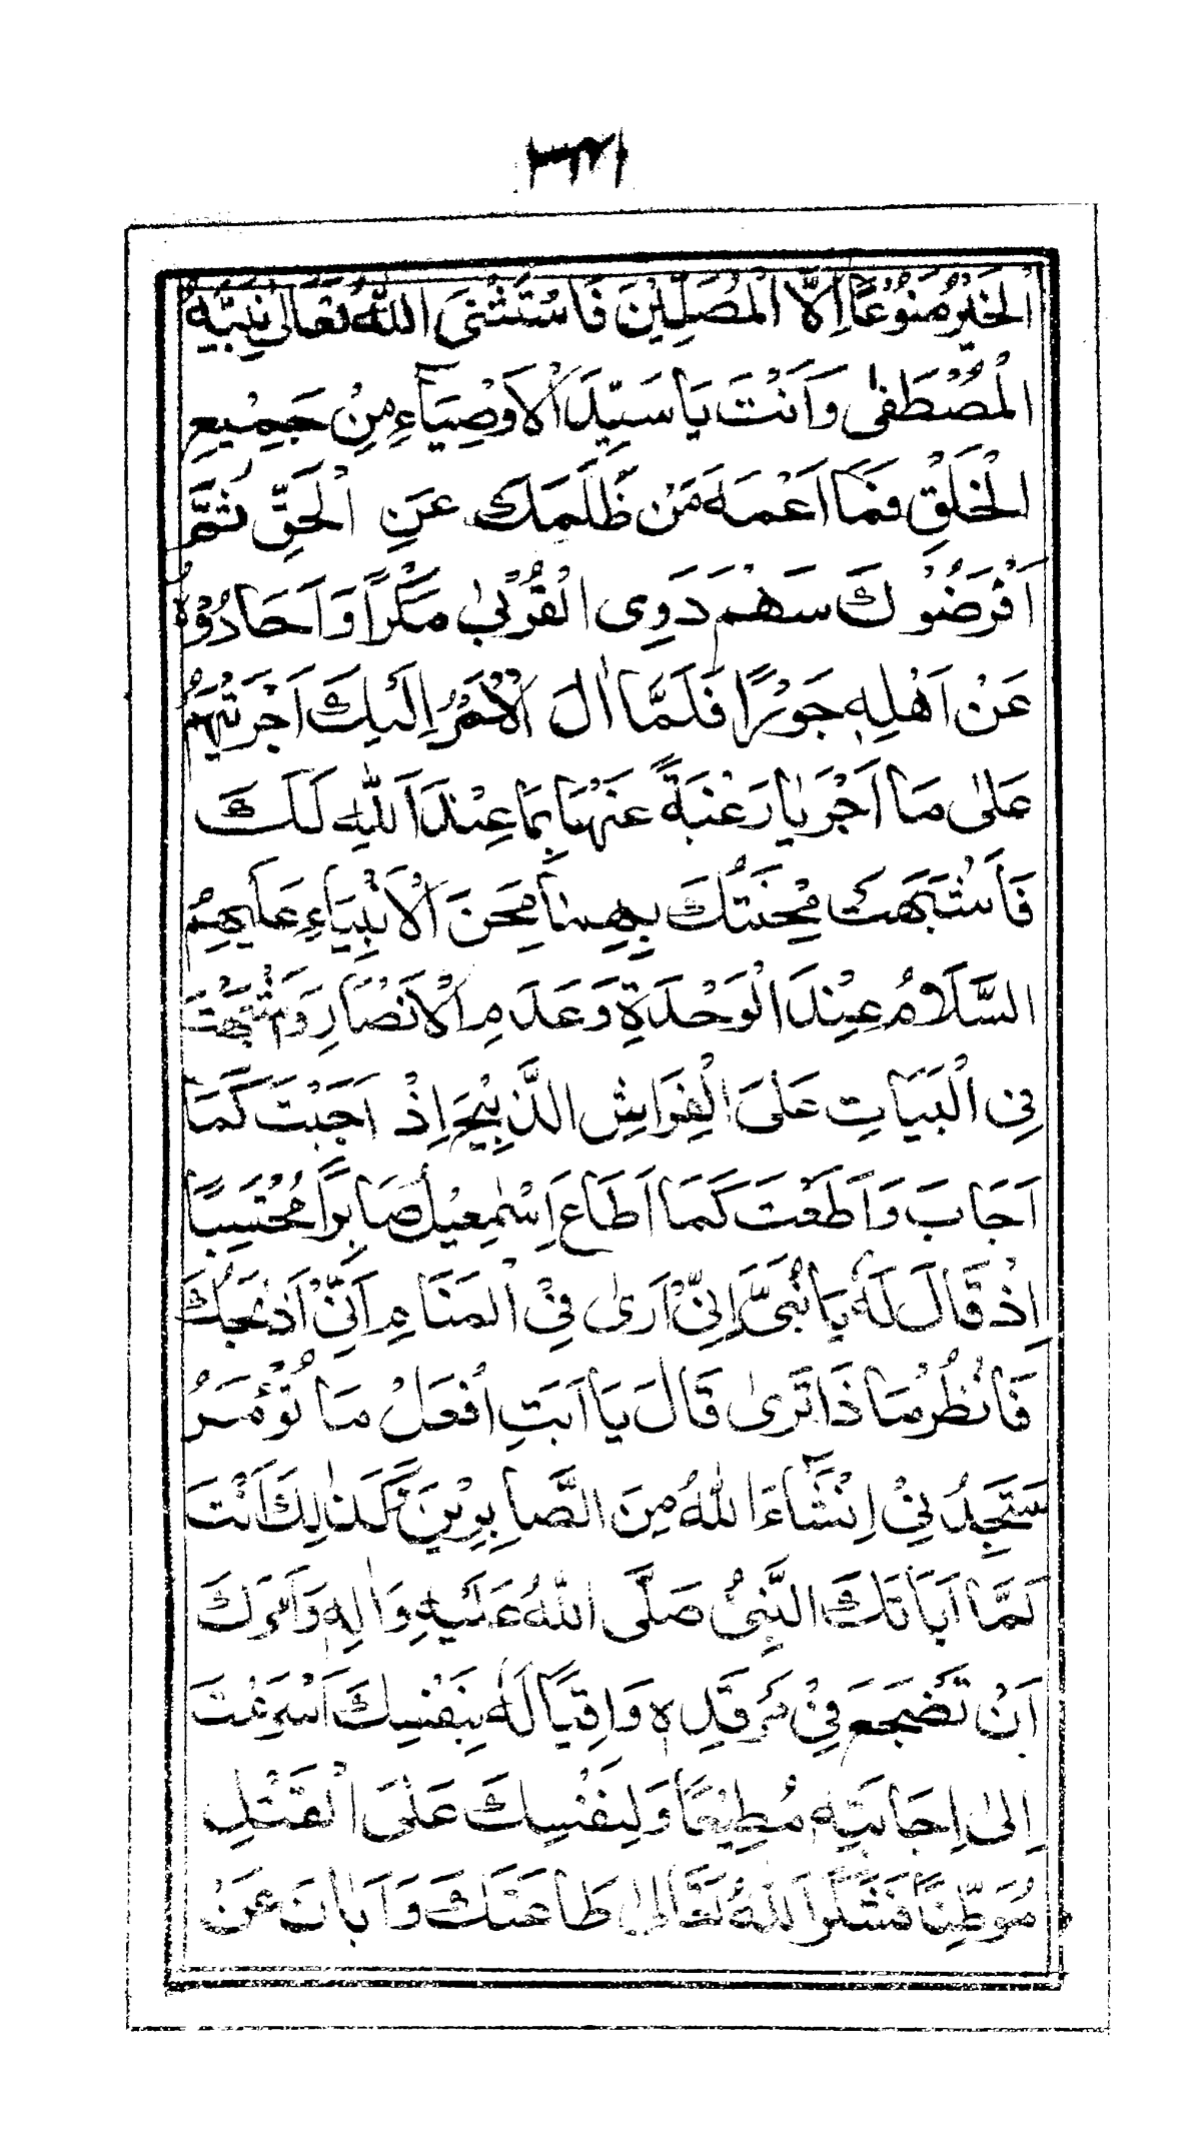 الْخَيْرُ مَنُوْعًا اِلاَّ الْمُصَلِّيْنَ فَاسْتَثْنَى اللّٰهُ تَعَالٰى نَبِيَّهُ
الْمُصْطَفٰى وَاَنْتَ يَا سَيِّدَ الْاَوْصِيَآءِ مِنْ جَمِيْعِ
الْخَلْقِ فَمَا اَعْمَهَ مَنْ ظَلَمَكَ عَنِ الْحَقِّ ثُمَّ
اَفْرَضُوْكَ سَهْمَ ذَوِى الْقُرْبٰى مَكْرًا وَاَحَادُوْهُ
عَنْ اَهْلِهٖ جَوْرًا فَلَمَّا اٰلَ الْاَمْرُ اِلَيْكَ اَجْرَيْتَهُمْ
عَلٰى مَا اَجْرَيَا رَغْبَةً عَنْهُمَا بِمَا عِنْدَ اللّٰهِ لَكَ
فَاَشْبَهَتْ مِحْنَتُكَ بِهِمَا مِحَنَ الْاَنْبِيَآءِ عَلَيْهِمُ
السَّلَامُ عِنْدَ الْوَحْدَةِ وَعَدَمِ الْاَنْصَارِ وَاَشْبَهْتَ
فِى الْبَيَاتِ عَلَى الْفِرَاشِ الذَّبِيْحَ اِذْ اَجَبْتَ كَمَا
اَجَابَ وَاَطَعْتَ كَمَا اَطَاعَ اِسْمٰعِيْلُ صَابِرًا مُحْتَسِبًا
اِذْ قَالَ لَهٗ يَا بُنَىَّ اِنِّىْ اَرٰى فِىْ الْمَنَامِ اَنِّىْ اَذْبَحُكَ
فَانْظُرْ مَا ذَا تَرٰى قَالَ يَا اَبَتِ افْعَلْ مَا تُؤْمَرُ
سَتَجِدُنِىْ اِنْشَآءَ اللّٰهُ مِنَ الصَّابِرِيْنَ وَكَذٰلِكَ اَنْتَ
لَمَّا اَبَاتَكَ النَّبِىُّ صَلَّى اللّٰهُ عَلَيْهِ وَاٰلِهٖ وَاَمَرَكَ
اَنْ تَضْجَعَ فِىْ مَرْقَدِهٖ وَاقِيًا لَهٗ بِنَفْسِكَ اَسْرَعْتَ
اِلٰى اِجَابَتِهٖ مُطِيْعًا وَلِنَفْسِكَ عَلَى الْقَتْلِ
مُوَطِّنًا فَشَكَرَ اللّٰهُ تَعَالٰى طَاعَتَكَ وَاَبَانَ عَنْ